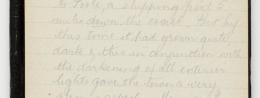 to Poole, a shipping port 5
miles down the coast. But by
this time it had grown quite
dark & this in conjunction with
the darkening of all exterior
lights gave the town a very